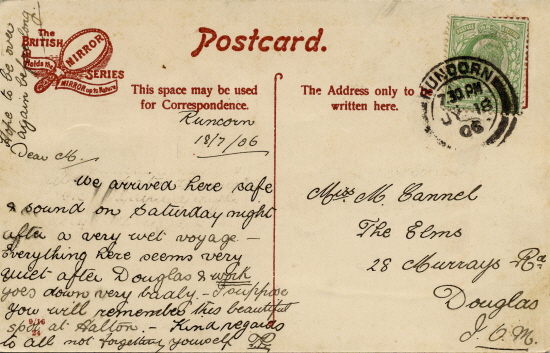 Hope to be over
again before long
The
BRITISH
MIRROR
SERIES
Holds the
MIRROR up to Nature
Postcard.
This space may be used
for Correspondence.
The Address only to
written here.
RUNCORN
7.30 PM
JY 18
06
Runcorn
18/7/06
Dear M.
We arrived here safe
& sound on Saturday night
after a very wet voyage. –
Everything here seems very
quiet after Douglas & work
goes down very badly. – I suppose
you will remember this beautiful
spot at Halton. – Kind regards
to all not forgetting yourself.
Miss M. Cannel
The Elms
28 Murrays Rd
Douglas
I.O.M.